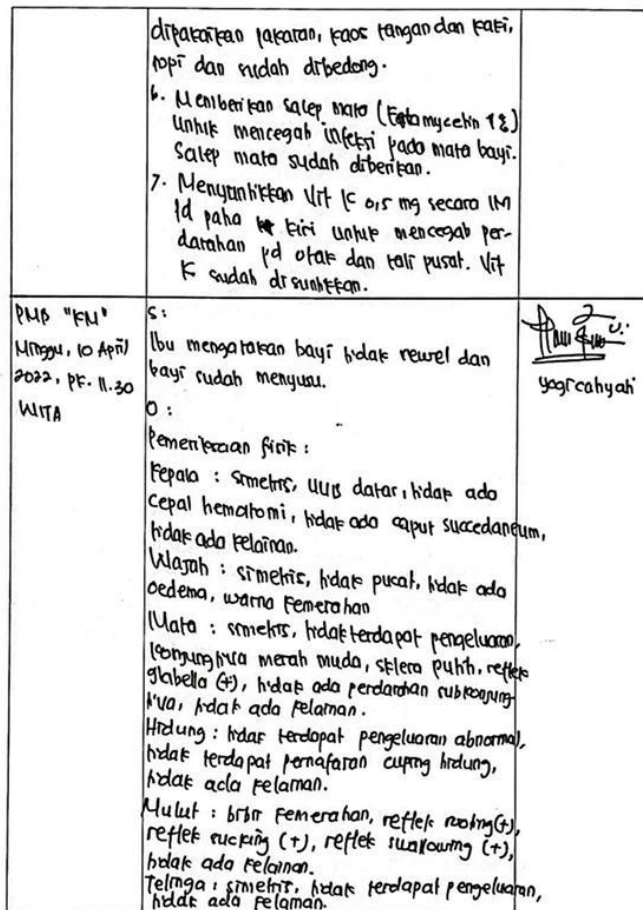 dipakaikan pakaian, kaos tangan dan kaki,
topi dan sudah dibedong.
6. Memberikan salep mata (mycetin 1%)
untuk mencegah infeksi pada mata bayi.
Salep mata sudah diberikan.
7. Menyuntikkan Vit K 0,5 mg secara IM
pd paha kiri untuk mencegah per-
darahan pd otak dan tali pusat. Vit
K sudah disuntikkan.
PMB "KM"
Minggu, 10 April
2022, pk. 11.30
WITA
S:
Ibu mengatakan bayi tidak rewel dan
bayi sudah menyusu.
O:
Pemeriksaan fisik:
Kepala : simetris, UUB datar, tidak ada
cepal hematomi, tidak ada caput succedaneum,
tidak ada kelainan.
Wajah : simetris, tidak pucat, tidak ada
oedema, warna kemerahan
Mata : simetris, tidak terdapat pengeluaran,
konjungtiva merah muda, sklera putih, reflek
glabella (+), tidak ada perdarahan subkonjung-
tiva, tidak ada kelainan.
Hidung : tidak terdapat pengeluaran abnormal,
tidak terdapat pernafasan cuping hidung,
tidak ada kelainan.
Mulut : bibir kemerahan, reflek rooting (+),
reflek sucking (+), reflek swallowing (+),
tidak ada kelainan.
Telinga : simetris, tidak terdapat pengeluaran,
tidak ada kelainan.
yogi cahyati